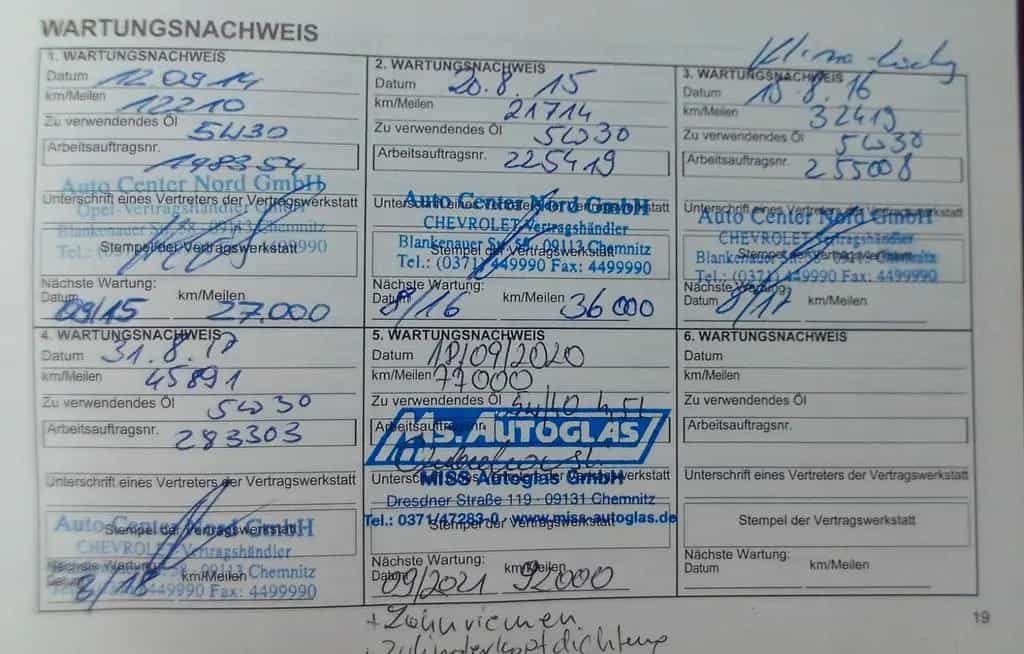 WARTUNGSNACHWEIS
1. WARTUNGSNACHWEIS
Datum 12.09.14
km/Meilen
12210
Zu verwendendes Öl
5W30
Arbeitsauftragsnr.
198354
Auto Center Nord GmbH
Unterschrift eines Vertreters der Vertragswerkstatt
Opel-Vertragshändler GmbH
Blankenauer Str. 09113 Chemnitz
Stempel der Vertragswerkstatt
Tel.: (0371) 449990
Nächste Wartung:
Datum km/Meilen
09/15 27.000
2. WARTUNGSNACHWEIS
Datum 20.8.15
km/Meilen
21714
Zu verwendendes Öl
5W30
Arbeitsauftragsnr.
225419
Auto Center Nord GmbH
Unterschrift eines Vertreters der Vertragswerkstatt
CHEVROLET Vertragshändler
Blankenauer Str. 58, 09113 Chemnitz
Stempel der Vertragswerkstatt
Tel.: (0371) 449990 Fax: 4499990
Nächste Wartung:
Datum km/Meilen
8/16 36000
Klima
3. WARTUNGSNACHWEIS
Datum 18.8.16
km/Meilen
32419
Zu verwendendes Öl
5W30
Arbeitsauftragsnr.
255008
Unterschrift eines Vertreters der Vertragswerkstatt
Auto Center Nord GmbH
CHEVROLET Vertragshändler
Stempel der Vertragswerkstatt
Blankenauer Chemnitz
Tel.: (0371) 449990 Fax: 4499990
Nächste Wartung:
Datum km/Meilen
8/17
4. WARTUNGSNACHWEIS
Datum 31.8.17
km/Meilen
45891
Zu verwendendes Öl
5W30
Arbeitsauftragsnr.
283303
Unterschrift eines Vertreters der Vertragswerkstatt
Auto Center Nord GmbH
Stempel der Vertragswerkstatt
CHEVROLET Vertragshändler
Nächste Wartung:
09113 Chemnitz
Datum km/Meilen
8/18
4499990 Fax: 4499990
5. WARTUNGSNACHWEIS
Datum 18/09/2020
km/Meilen 77000
Zu verwendendes Öl
Ms. AUTOGLAS
Arbeitsauftragsnr.
Unterschrift eines Vertreters der Vertragswerkstatt
MISS Autoglas GmbH
Dresdner Straße 119 · 09131 Chemnitz
Tel.: 0371/47283-0 · www.miss-autoglas.de
Stempel der Vertragswerkstatt
Nächste Wartung:
Datum km/Meilen
09/2021 92000
+ Zahnriemen
+ Zylinderkopfdichtung
6. WARTUNGSNACHWEIS
Datum
km/Meilen
Zu verwendendes Öl
Arbeitsauftragsnr.
Unterschrift eines Vertreters der Vertragswerkstatt
Stempel der Vertragswerkstatt
Nächste Wartung:
Datum km/Meilen
19